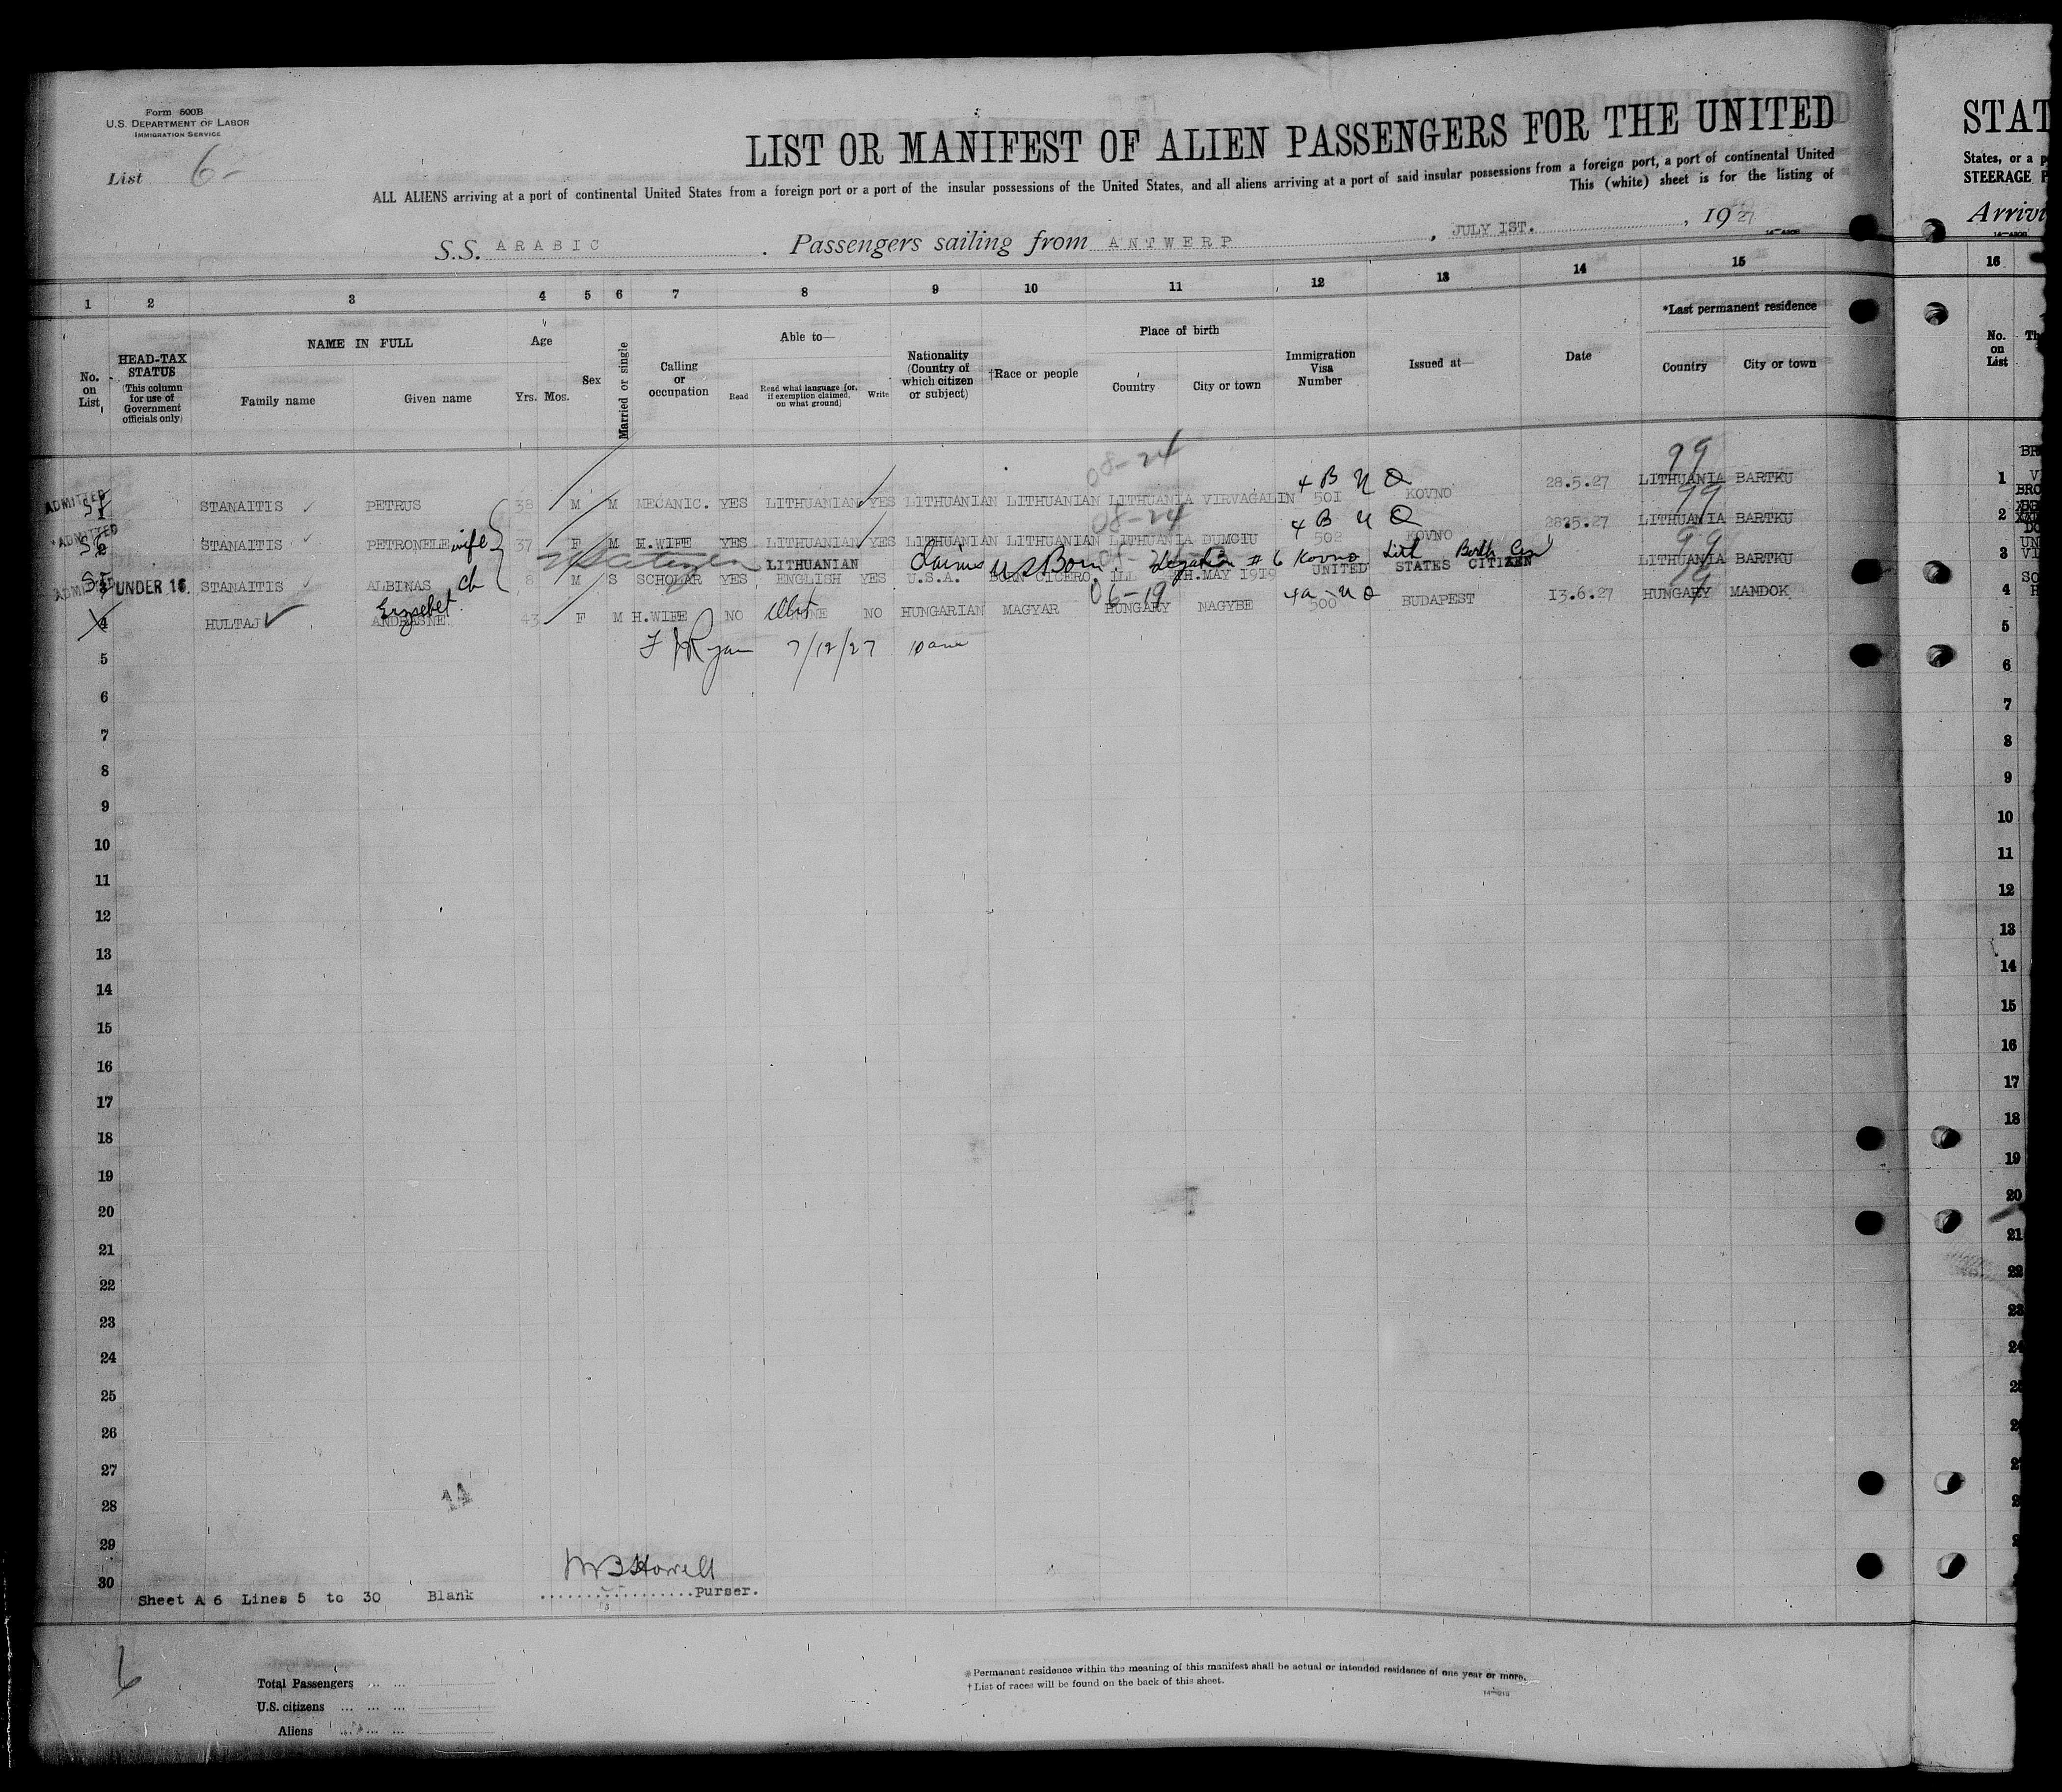 Form 500B
U.S. DEPARTMENT OF LABOR
IMMIGRATION SERVICE
List 6-
LIST OR MANIFEST OF ALIEN PASSENGERS FOR THE UNITED
ALL ALIENS arriving at a port of continental United States from a foreign port or a port of the insular possessions of the United States, and all aliens arriving at a port of said insular possessions from a foreign port, a port of continental United
This (white) sheet is for the listing of
S.S. ARABIC . Passengers sailing from ANTWERP , JULY 1ST. , 1927
STAT
States, or a p
STEERAGE P
Arrivi
1 2 3 4 5 6 7 8 9 10 11 12 13 14 15
16
No. on List
HEAD-TAX STATUS (This column for use of Government officials only)
NAME IN FULL
Family name Given name
Age
Yrs. Mos.
Sex
Married or single
Calling or occupation
Able to—
Read Read what language [or, if exemption claimed, on what ground] Write
Nationality (Country of which citizen or subject)
†Race or people
Place of birth
Country City or town
Immigration Visa Number
Issued at—
Date
*Last permanent residence
Country City or town
No. on List
08-24 99
ADMITTED 1 STANAITIS ✓ PETRUS 38 M M MECANIC. YES LITHUANIAN YES LITHUANIAN LITHUANIAN LITHUANIA VIRVAGALIN 501 KOVNO 28.5.27 LITHUANIA BARTKU
08-24 99
ADMITTED 2 STANAITIS ✓ PETRONELE wife 37 F M H.WIFE YES LITHUANIAN YES LITHUANIAN LITHUANIAN LITHUANIA DUMGIU 502 KOVNO 28.5.27 LITHUANIA BARTKU
US Citizen LITHUANIAN Claims US Born. Legation # 6 Kovno Lith Berth Cer
3 UNDER 16. STANAITIS ✓ ALBINAS ch 8 M S SCHOLAR YES ENGLISH YES U.S.A. BORN CICERO, ILL TH.MAY 1919 UNITED STATES CITIZEN LITHUANIA BARTKU
Erzsebet 06-19
4 HULTAJ ✓ ANDRASNE 43 F M H.WIFE NO NONE NO HUNGARIAN MAGYAR HUNGARY NAGYBE 500 BUDAPEST 13.6.27 HUNGARY MANDOK
F J Ryan 7/12/27
5
6
7
8
9
10
11
12
13
14
15
16
17
18
19
20
21
22
23
24
25
26
27
28
29
30
14
M B Howell
Sheet A 6 Lines 5 to 30 Blank ................purser.
6
Total Passengers ... ...
U.S. citizens ... ... ...
Aliens ... ... ...
*Permanent residence within the meaning of this manifest shall be actual or intended residence of one year or more.
†List of races will be found on the back of this sheet.